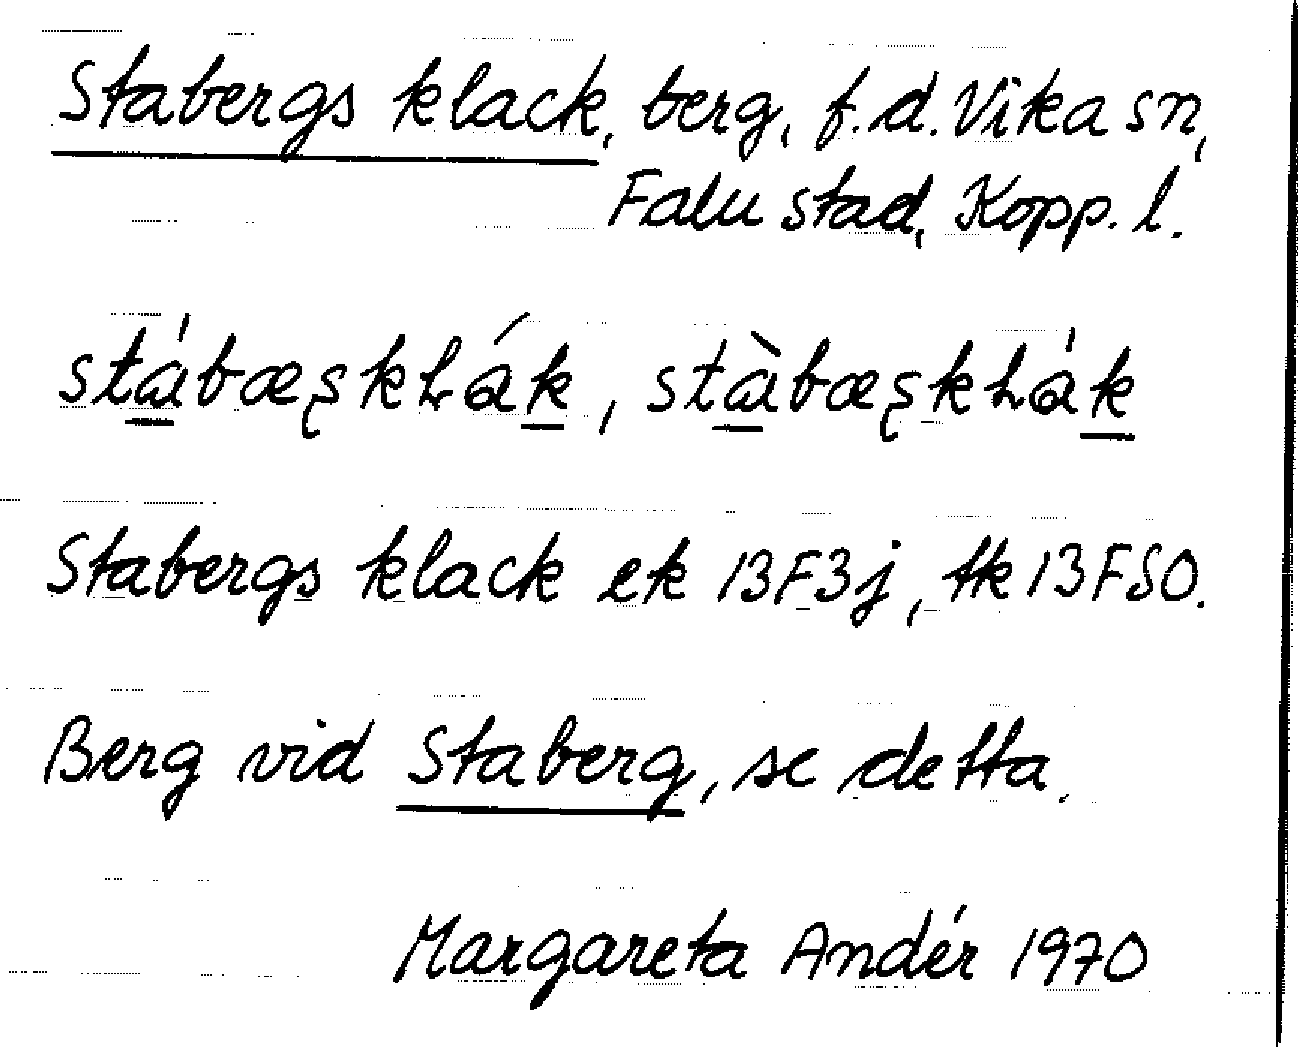 Stabergs klack, berg, f.d. Vika sn,
Falu stad, Kopp. l.
Stabergs klack ek 13F3j, tk 13FSO.
Berg vid Staberg, se detta.
Margareta Andér 1970